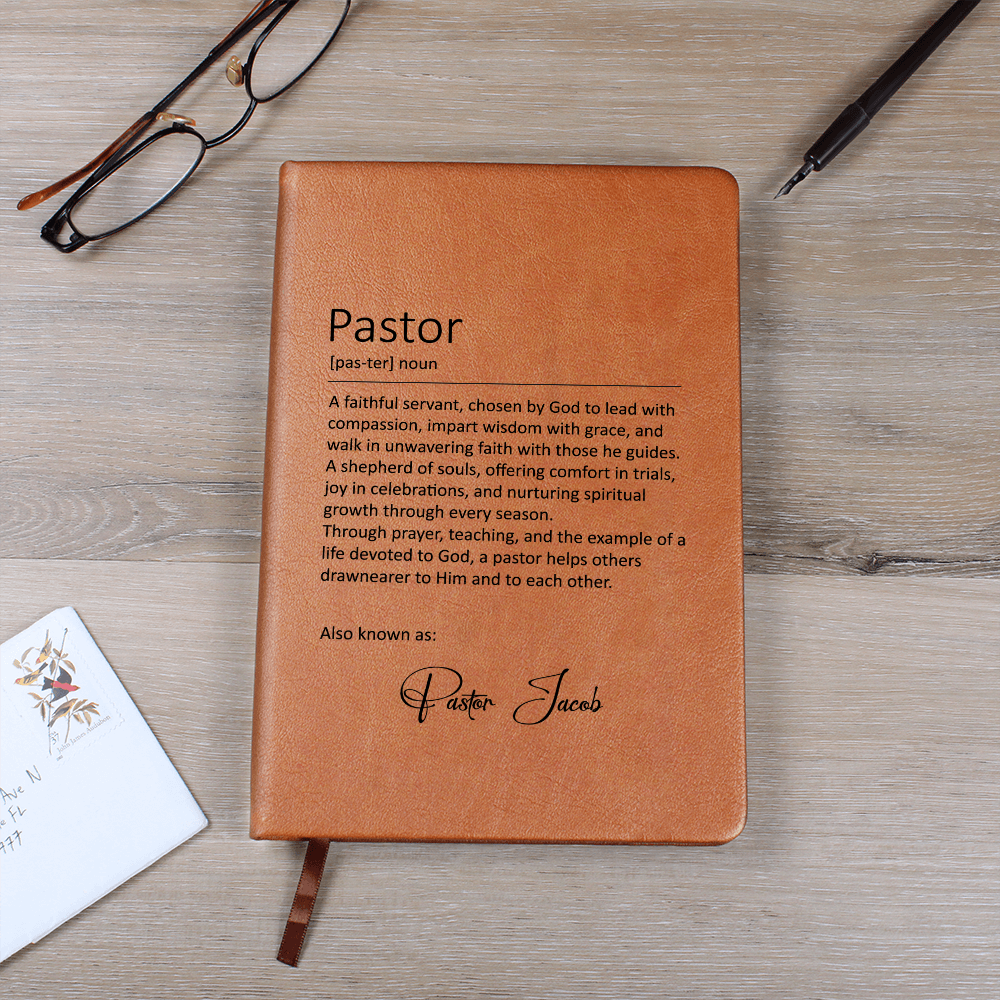 Pastor
[pas-ter] noun
A faithful servant, chosen by God to lead with
compassion, impart wisdom with grace, and
walk in unwavering faith with those he guides.
A shepherd of souls, offering comfort in trials,
joy in celebrations, and nurturing spiritual
growth through every season.
Through prayer, teaching, and the example of a
life devoted to God, a pastor helps others
drawnearer to Him and to each other.
Also known as:
Pastor Jacob
37
John James Audubon
Ave N
FL
777